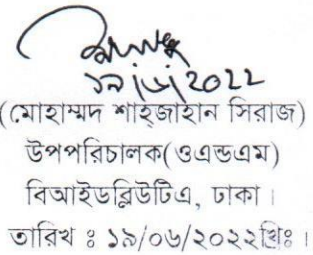 ১৯/৬/2022
(মোহাম্মদ শাহ্জাহান সিরাজ)
উপপরিচালক(ওএন্ডএম)
বিআইডব্লিউটিএ, ঢাকা।
তারিখ ঃ ১৯/০৬/২০২২খ্রিঃ।